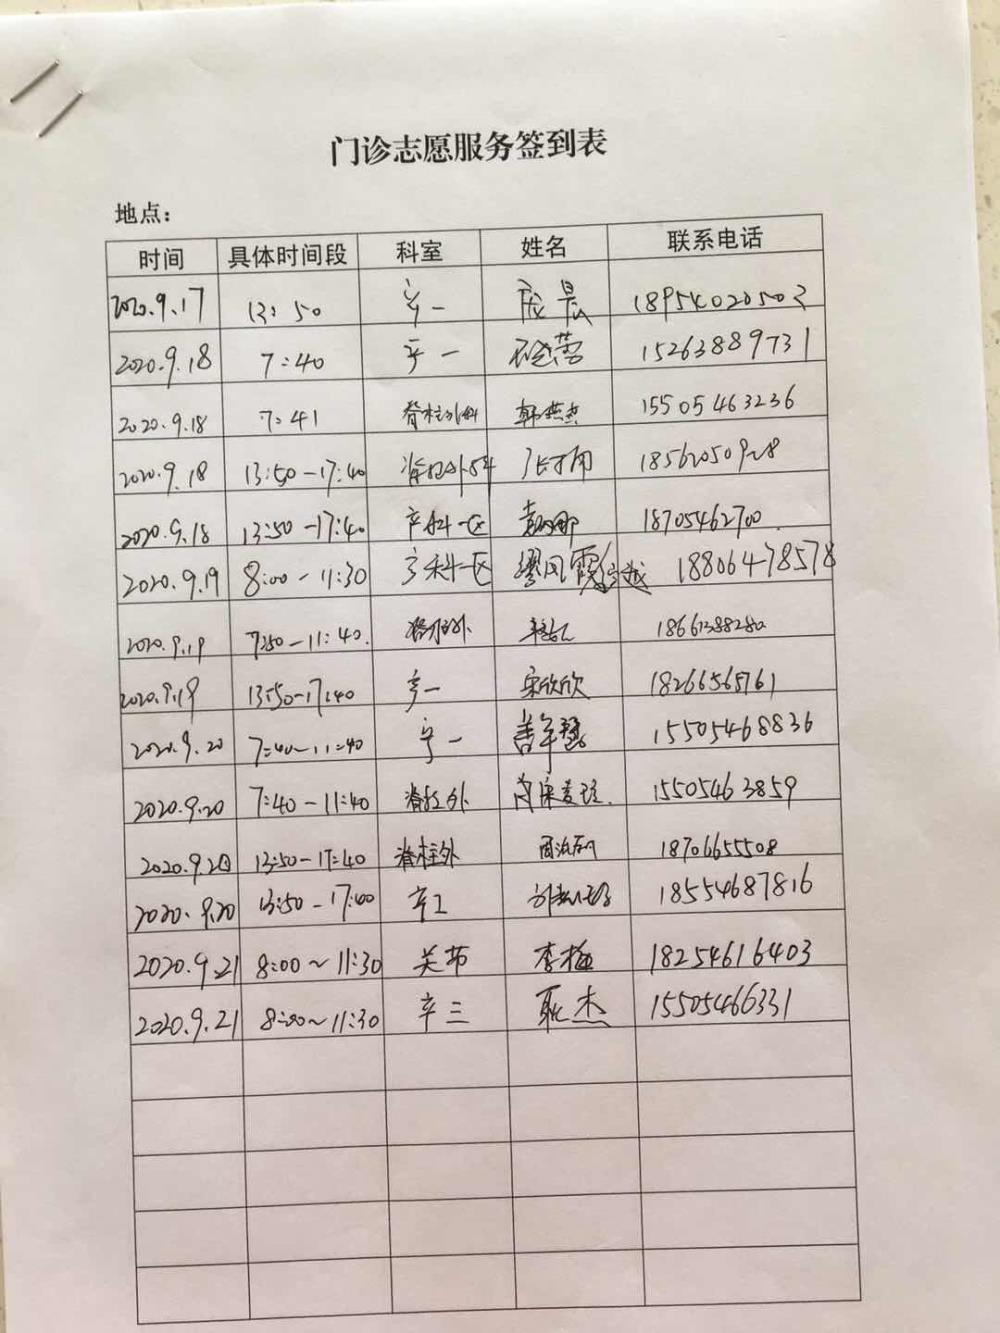 门诊志愿服务签到表
地点：
时间 具体时间段 科室 姓名 联系电话
2020.9.17 13:50 一 晨 18954020503
2020.9.18 7:40 一 15263889731
2020.9.18 7:41 脊柱外科 韩燕杰 15505463236
2020.9.18 13:50-17:40 脊柱外科 18562050928
2020.9.18 13:50-17:40 科一区 18705462700
2020.9.19 8:00-11:30 科一区 缪风霞 18806478578
2020.9.19 7:50-11:40. 脊柱外 18661388280
2020.9.19 13:50-17:40 一 宋欣欣 18266565761
2020.9.20 7:40~11:40 一 15505468836
2020.9.20 7:40-11:40 脊柱外 15505463859
2020.9.20 13:50-17:40 脊柱外 18706655508
2020.9.20 13:50-17:00 18554687816
2020.9.21 8:00~11:30 关节 李梅 18254616403
2020.9.21 8:00~11:30 三 耿杰 15505466331